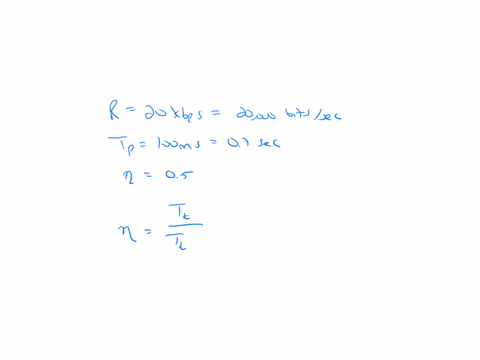 R = 20 kbps = 20,000 bits/sec
Tp = 100ms = 0.1 sec
η = 0.5
η = Tt / Tt